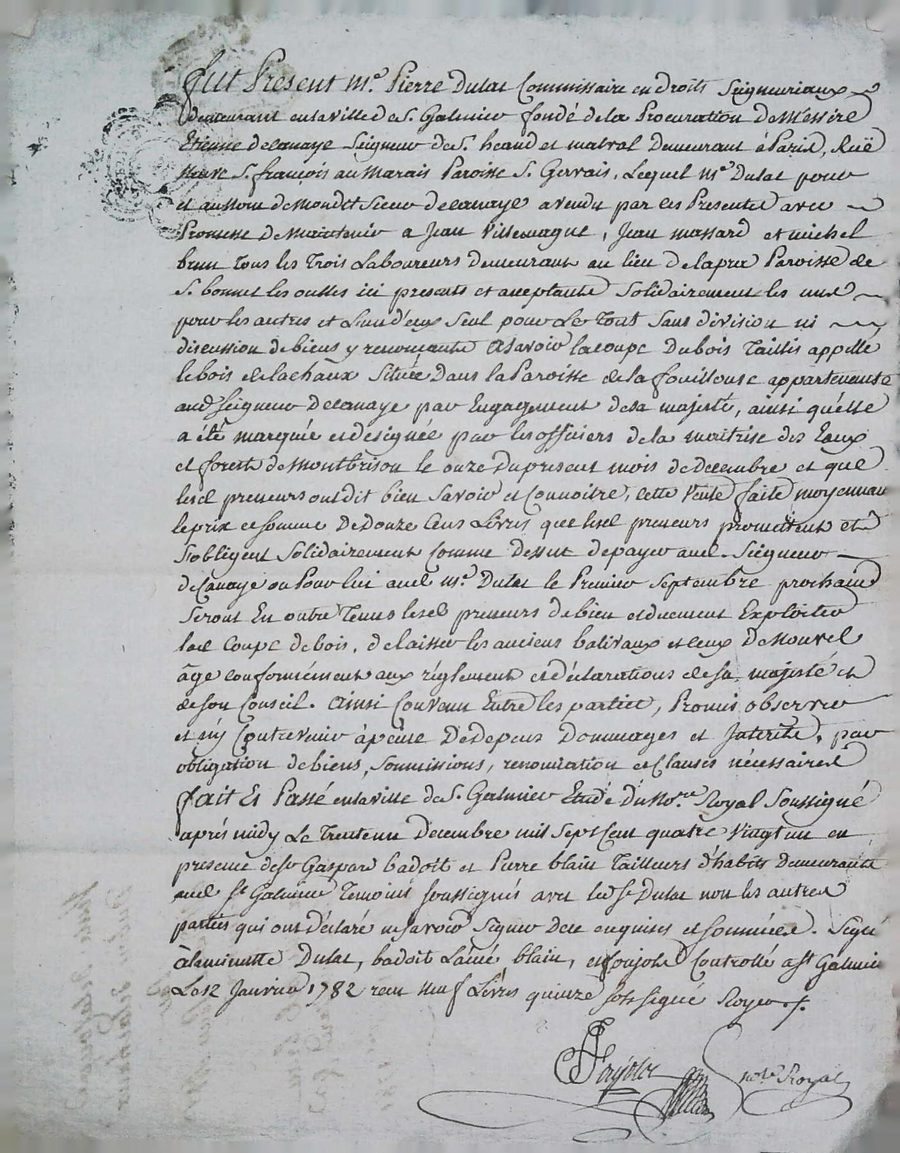 Fut Present me. Pierre Dulac Commissaire en droits Seigneuriaux
demeurant en la ville de St. Galmier fondé de la Procuration de Messire
Etienne delanaye Seigneur de St. heand et malval demeurant à Paris, Rüe
neuve St. françois au marais Paroisse St. Gervais, Lequel me. Dulac pour
et au nom de mondt. Sieur delanaye a vendu par ces Presentes avec
Promesse de maintenir a Jean Villemagne, Jean massard et michel
brun tous les Trois Laboureurs demeurant au lieu de Paroisse de
St. bonnet les oulles ici presents et acceptants Solidairement les uns
pour les autres et L'un d'eux Seul pour Le Tout Sans division ni
discussion de biens y renonçants Asavoir la coupe Du bois Taillis appellé
le bois de lachaux Située Dans la Paroisse de la fouillouse appartenante
aud. Seigneur Delanaye par Engagement de sa majesté, ainsi qu'elle
a été marquée et designée par les officiers de la maitrise des Eaux
et forests de Montbrison le onze du present mois de decembre et que
lesd. preneurs ont dit bien Savoir et Connoitre, cette Vente faite moyennant
le prix et somme De Douze Cens Livres que lesd. preneurs promettent et
S'obligent Solidairement Comme dessus de payer aud. Seigneur
delanaye ou Pour lui aud. me. Dulac le Premier Septembre prochain
Seront En outre Tenus lesd. preneurs de bien et duement Exploiter
lad. Coupe de bois, de laisser les anciens balivaux et ceux De Nouvel
âge conformément aux réglement et déclarations de sa majesté et
de son Conseil. Ainsi Convenu Entre les parties, Promis observer
et n'y Contrevenir à peine De Depens Dommages et Interêts, par
obligation de biens, Soumissions, renonciation et Clauses nécessaires
fait Et Passé en la ville de St. Galmier Etude du Nore. Royal Soussigné
aprés midy Le Trente un Decembre mil Sept Cent quatre Vingt un en
presence de Sr. Gaspard badoit et Pierre blain Tailleurs d'habits demeurants
aud. St. Galmier Temoins Soussignés avec led. Sr. Dulac non les autres
parties qui ont déclaré ne savoir Signer De ce enquises et sommées. Signé
à la minutte Dulac, badoit L'ainé blain, et foujols Controllé a St. Galmier
Le 12 Janvier 1782 recu neuf Livres quinze sols signé Royer.
foujols nore. Royal